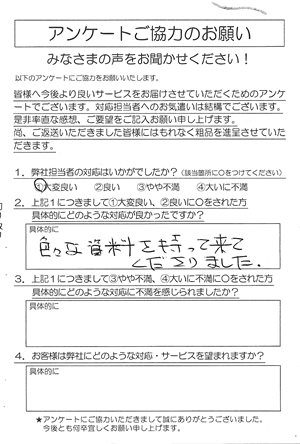 アンケートご協力のお願い
みなさまの声をお聞かせください！
以下のアンケートにご協力をお願いいたします。
皆様へ今後より良いサービスをお届けさせていただくためのアンケ
ートでございます。対応担当者へのお気遣いは結構でございます。
是非率直な感想、ご要望をご記入お願い申し上げます。
尚、ご返送いただきました皆様にはもれなく粗品を進呈させていた
だきます。
1．弊社担当者の対応はいかがでしたか？（該当箇所に○をつけてください）
①大変良い　②良い　③やや不満　④大いに不満
2．上記1につきまして①大変良い、②良いに○をされた方
具体的にどのような対応が良かったですか？
具体的に
色々な資料を持って来て
くださりました。
3．上記1につきまして③やや不満、④大いに不満に○をされた方
具体的にどのような対応に不満を感じられましたか？
具体的に
4．お客様は弊社にどのような対応・サービスを望まれますか？
具体的に
★アンケートにご協力いただきまして誠にありがとうございました。
今後とも何卒宜しくお願い申し上げます。